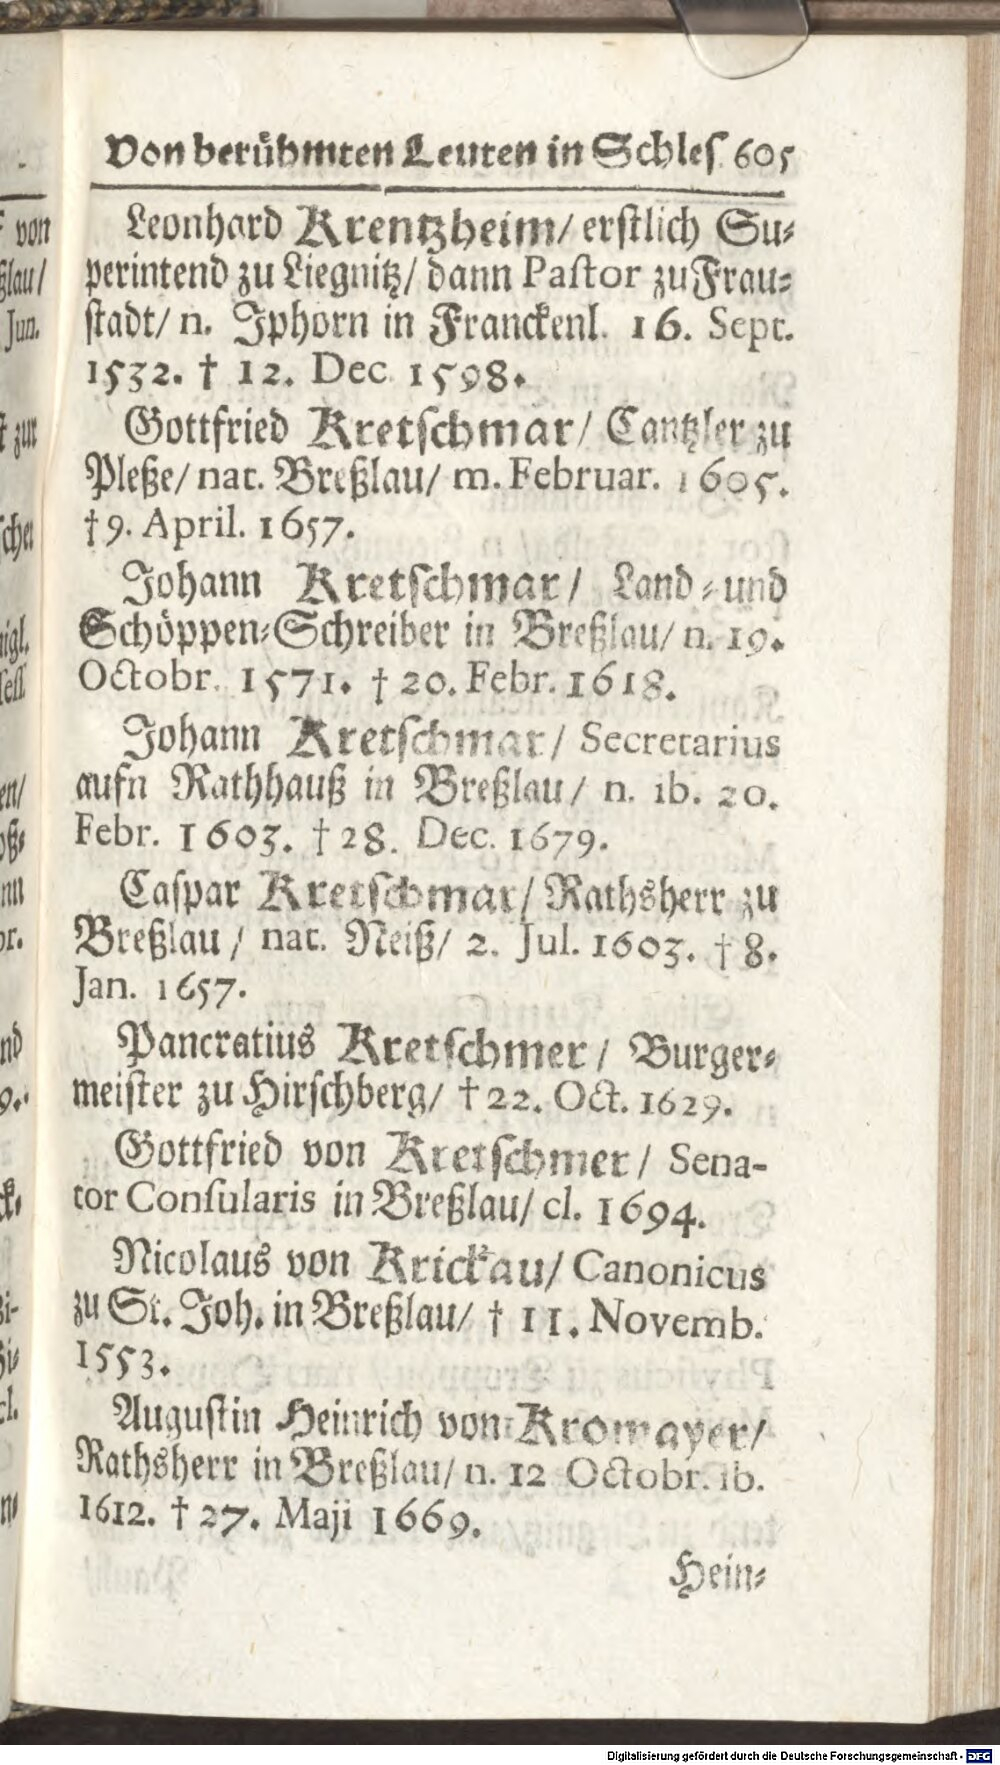 Von berühmten Leuten in Schles. 605
Leonhard Krentzheim/ erstlich Su-
perintend zu Liegnitz/ dann Pastor zu Frau-
stadt/ n. Jphorn in Franckenl. 16. Sept.
1532. † 12. Dec. 1598.
Gottfried Kretschmar/ Cantzler zu
Pleße/ nat. Breßlau/ m. Februar. 1605.
† 9. April. 1657.
Johann Kretschmar/ Land- und
Schöppen-Schreiber in Breßlau/ n. 19.
Octobr. 1571. † 20. Febr. 1618.
Johann Kretschmar/ Secretarius
aufn Rathhauß in Breßlau/ n. ib. 20.
Febr. 1603. † 28. Dec. 1679.
Caspar Kretschmar/ Rathsherr zu
Breßlau/ nat. Neiß/ 2. Jul. 1603. † 8.
Jan. 1657.
Pancratius Kretschmer/ Burger-
meister zu Hirschberg/ † 22. Oct. 1629.
Gottfried von Kretschmer/ Sena-
tor Consularis in Breßlau/ cl. 1694.
Nicolaus von Krickau/ Canonicus
zu St. Joh. in Breßlau/ † 11. Novemb.
1553.
Augustin Heinrich von Kromayer/
Rathsherr in Breßlau/ n. 12 Octobr. ib.
1612. † 27. Maji 1669.
Hein-
Digitalisierung gefördert durch die Deutsche Forschungsgemeinschaft - DFG